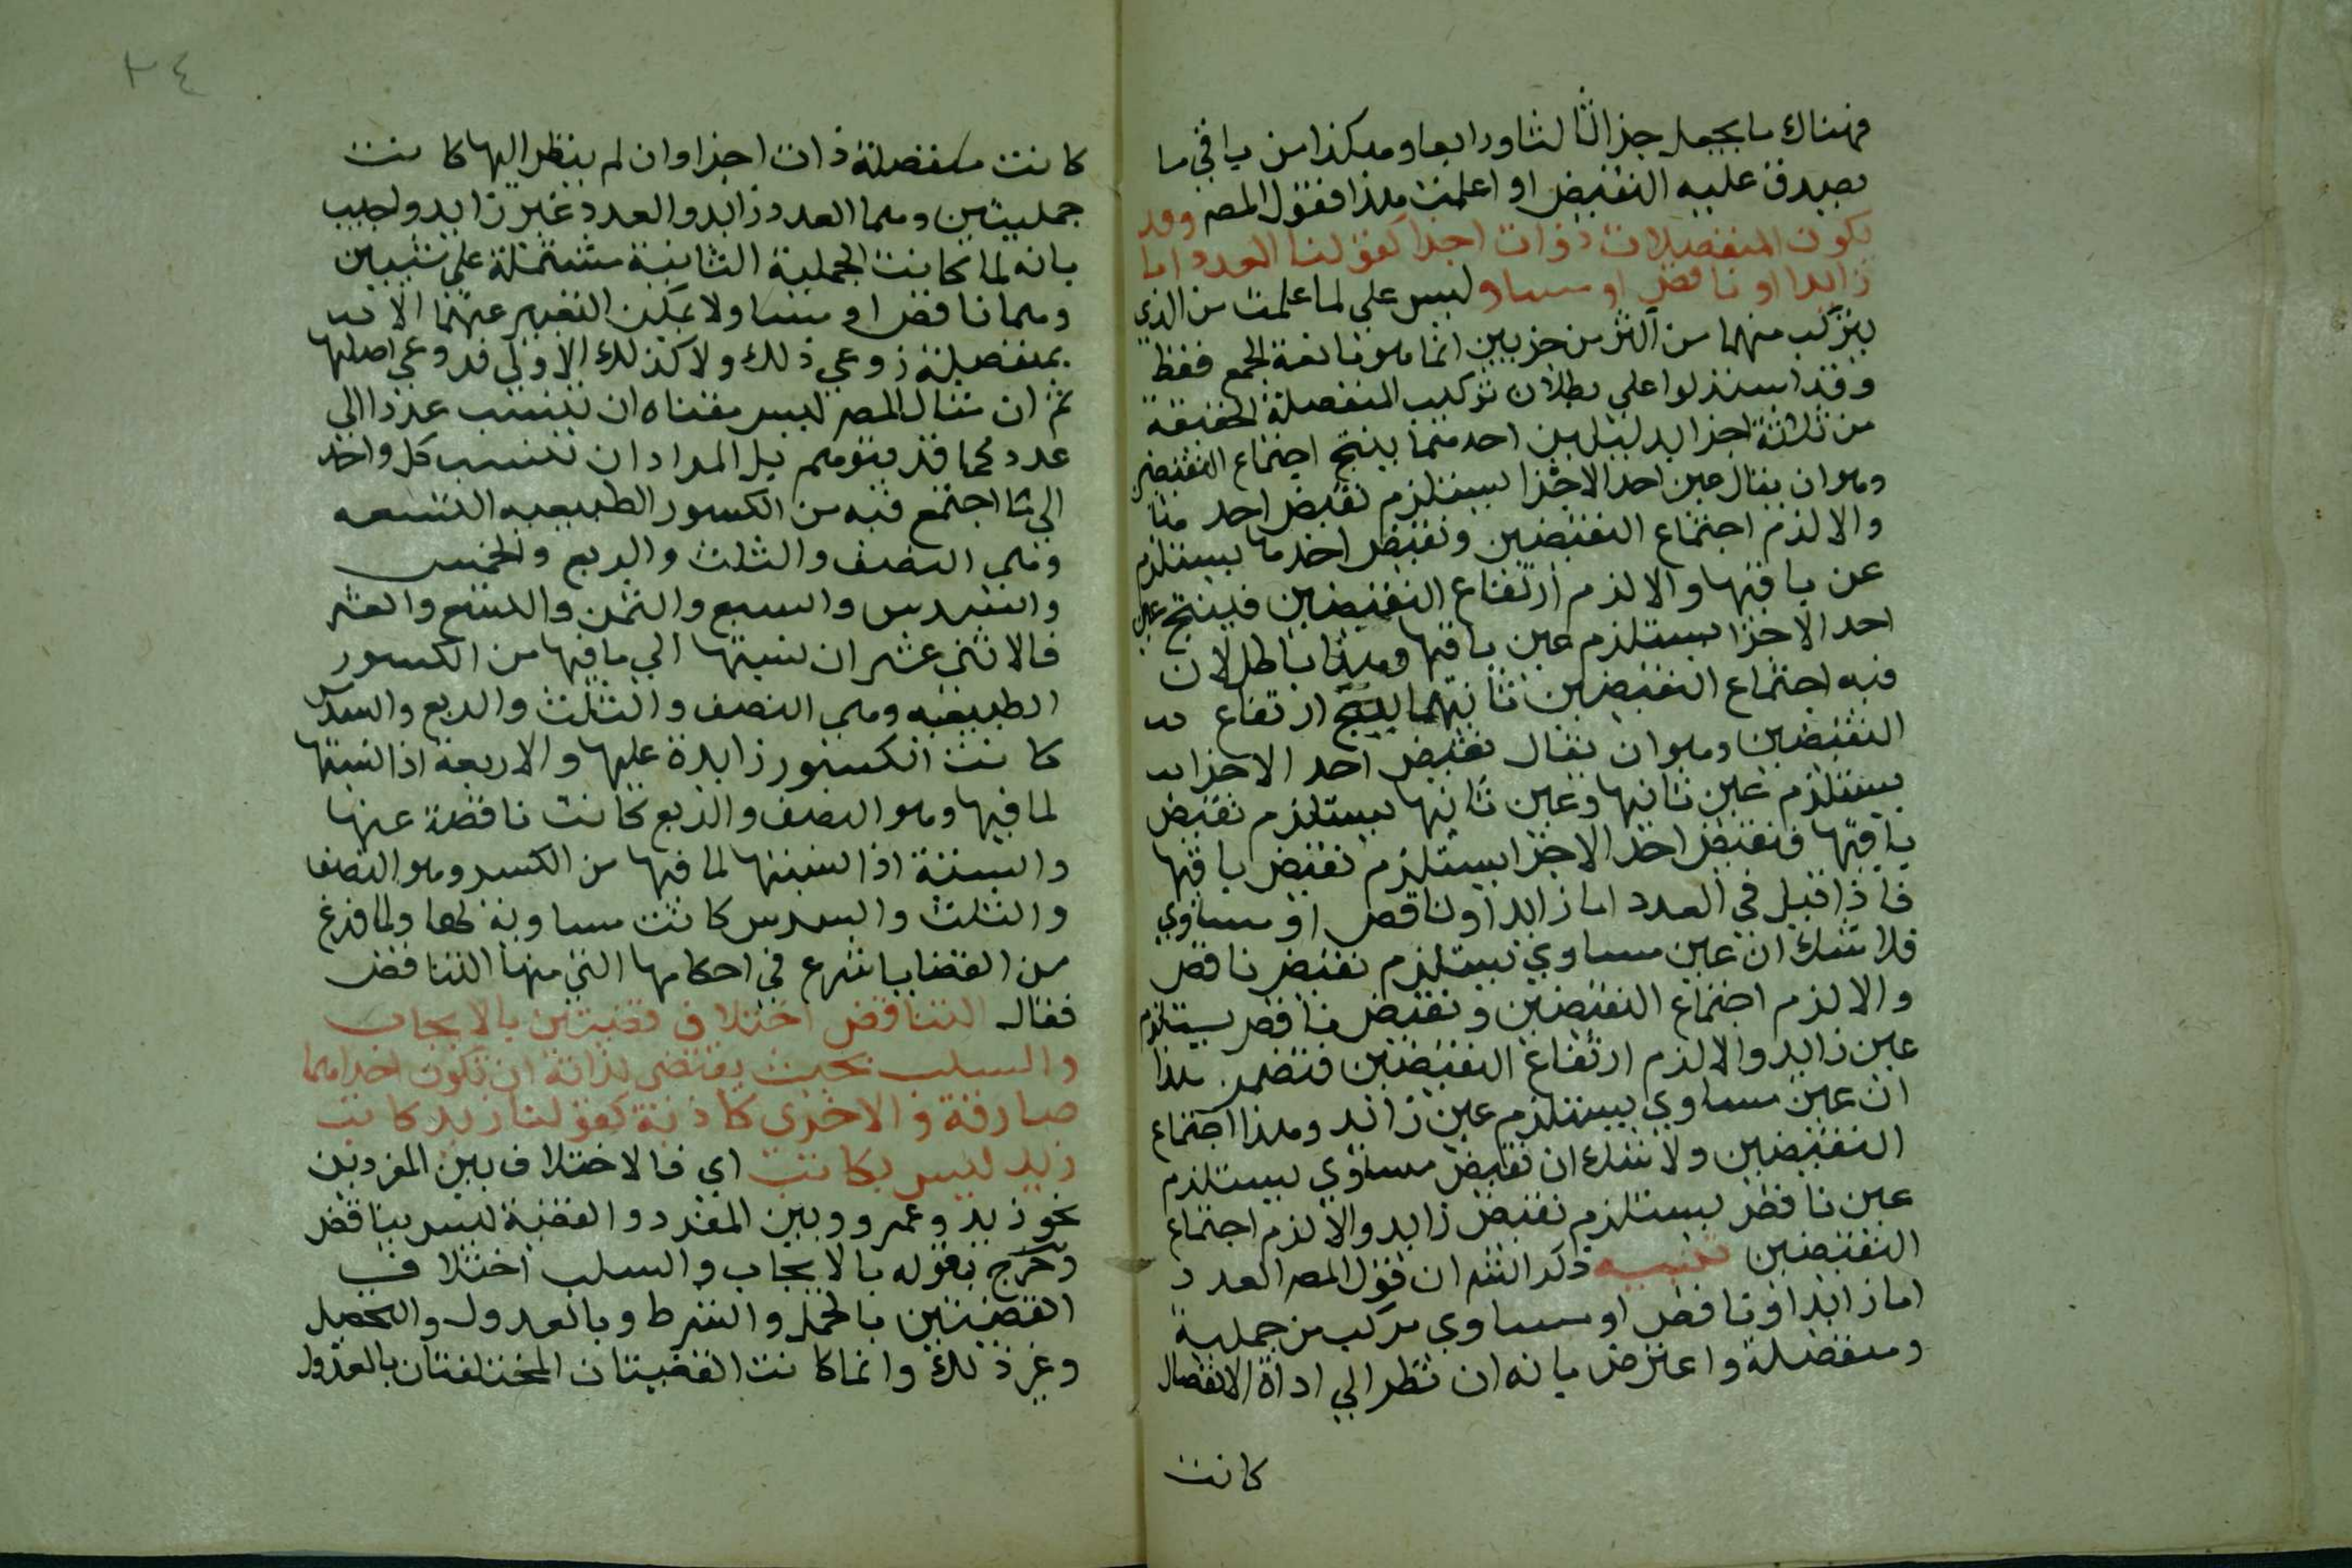 فهناك ما يجعل جزا ثالثا ورابعا وهكذا من باقي ما
يصدق عليه النقيض اذا علمت هذا فقول المصـ وقد
تكون المنفصلات ذوات اجزا كقولنا العدد اما
زايدا او ناقص او مساو ليس على لما علمت من الذي
يتركب منهما من اكثر من جزيين انما هو مانعة الجمع فقط
وقد استدلوا على بطلان تركيب المنفصلة الحقيقة
من ثلاثة اجزا بدليلين احدهما ينتج اجتماع النقيضين
وهو ان يقال عين احد الاجزا يستلزم نقيض احد
والا لزم اجتماع النقيضين ونقيض احدها يستلزم
عن باقيها والا لزم ارتفاع النقيضين فينتج عين
احد الاجزا يستلزم عين باقيها وهذا باطل لان
فيه اجتماع النقيضين ثانيهما ينتج ارتفاع
النقيضين وهو ان يقال نقيض احد الاجزا
يستلزم عين ثانيها وعين ثانيها يستلزم نقيض
باقيها فنقيض احد الاجزا يستلزم نقيض باقيها
فاذا قيل في العدد اما زايد او ناقص او مساوي
فلا شك ان عين مساوي يستلزم نقيض ناقص
والا لزم اجتماع النقيضين ونقيض ناقص يستلزم
عين زايد والا لزم ارتفاع النقيضين فتضمن هذا
ان عين مساوي يستلزم عين زائد وهذا اجتماع
النقيضين ولا شك ان نقيض مساوي يستلزم
عين ناقص يستلزم نقيض زايد والا لزم اجتماع
النقيضين تنبيه ذكر الشـ ان قول المصـ العدد
اما زايد او ناقص او مساوي مركب من حملية
ومنفصلة واعترض بانه ان نظر الى اداة الانفصال
كانت
٢٤
كانت منفصلة ذات اجزا وان لم ينظر اليها كانت
حمليتين وهما العدد زايد والعدد غير زايد واجيب
بانه لما كانت الحملية الثانية مشتملة على شيين
وهما ناقص او مساو ولا يمكن التعبير عنهما الا
بمنفصلة روعي ذلك ولا كذلك الاولى فروعي اصلها
ثم ان مثال المصـ ليس معناه ان تنسب عددا الي
عدد كما قد يتوهم بل المراد ان تنسب كل واحد
الي ما اجتمع فيه من الكسور الطبيعيه التسعه
وهي النصف والثلث والربع والخمس
والسدس والسبع والثمن والتسع والعشر
فالاثني عشر ان نسبتها الي ما فيها من الكسور
الطبيعيه وهي النصف والثلث والربع والسدس
كانت الكسور زايدة عليها والاربعة اذا نسبتها
لما فيها وهو النصف والربع كانت ناقصة عنها
والستة اذا نسبتها لما فيها من الكسر وهو النصف
والثلث والسدس كانت مساوية لها ولما فرغ
من القضايا شرع في احكامها التي منها التناقض
فقال التناقض اختلاف قضيتين بالايجاب
والسلب بحيث يقتضي لذاته ان تكون احداهما
صادقة والاخرى كاذبة كقولنا زيد كاتب
زيد ليس بكاتب اي فالاختلاف بين المفردين
نحو زيد وعمرو وبين المفرد والقضية ليس بناقض
وخرج بقوله بالايجاب والسلب اختلاف
القضيتين بالحمل والشرط وبالعدول والتحصيل
وغير ذلك وانما كانت القضيتان المختلفتان بالعدول